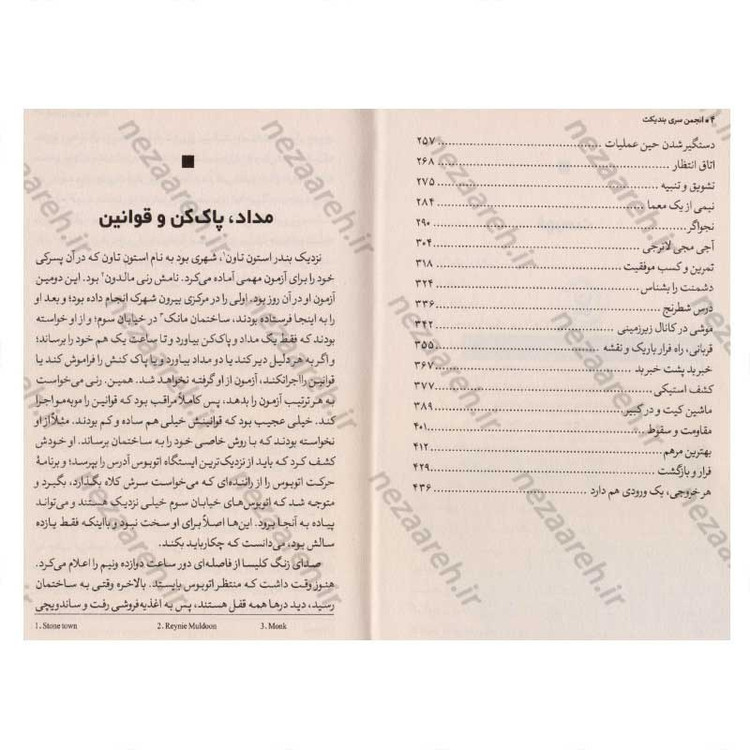 ۴ ■ انجمن سری بندیکت
دستگیر شدن حین عملیات ........ ۲۵۷
اتاق انتظار ........ ۲۶۸
تشویق و تنبیه ........ ۲۷۵
نیمی از یک معما ........ ۲۸۴
نجواگر ........ ۲۹۰
آجی مجی لاترجی ........ ۳۰۴
تمرین و کسب موفقیت ........ ۳۱۸
دشمنت را بشناس ........ ۳۲۴
درس شطرنج ........ ۳۳۶
موشی در کانال زیرزمینی ........ ۳۲۲
قربانی، راه فرار باریک و نقشه ........ ۳۵۵
خبر بد پشت خبر بد ........ ۳۶۷
کشف استیکی ........ ۳۷۷
ماشین کیت و در کبیر ........ ۳۸۹
مقاومت و سقوط ........ ۴۰۱
بهترین مرهم ........ ۴۱۲
فرار و بازگشت ........ ۴۲۹
هر خروجی، یک ورودی هم دارد ........ ۴۳۶
مداد، پاک‌کن و قوانین
نزدیک بندر استون تاون۱، شهری بود به نام استون تاون که در آن پسرکی
خود را برای آزمون مهمی آماده می‌کرد. نامش رنی مالدون۲ بود. این دومین
آزمون او در آن روز بود. اولی را در مرکزی بیرون شهرک انجام داده بود؛ و بعد او
را به اینجا فرستاده بودند، ساختمان مانک۳ در خیابان سوم؛ و از او خواسته
بودند که فقط یک مداد و پاک‌کن بیاورد و تا ساعت یک هم خود را برساند؛
و اگر به هر دلیل دیر کند یا دو مداد بیاورد و یا پاک کنش را فراموش کند یا
قوانین را اجرا نکند، آزمون از او گرفته نخواهد شد. همین. رنی می‌خواست
به هر ترتیب آزمون را بدهد، پس کاملاً مراقب بود که قوانین را موبه‌مو اجرا
کند. خیلی عجیب بود که قوانینش خیلی هم ساده و کم بودند. مثلاً از او
نخواسته بودند که با روش خاصی خود را به ساختمان برساند. او خودش
کشف کرد که باید از نزدیک‌ترین ایستگاه اتوبوس آدرس را بپرسد؛ و برنامهٔ
حرکت اتوبوس را از راننده‌ای که می‌خواست سرش کلاه بگذارد، بگیرد و
متوجه شد که اتوبوس‌های خیابان سوم خیلی نزدیک هستند و می‌تواند
پیاده به آنجا برود. این‌ها اصلاً برای او سخت نبود و بااینکه فقط یازده
سالش بود، می‌دانست که چکار باید بکند.
صدای زنگ کلیسا از فاصله‌ای دور ساعت دوازده ونیم را اعلام می‌کرد.
هنوز وقت داشت که منتظر اتوبوس بایستد. بالاخره وقتی به ساختمان
رسید، دید درها همه قفل هستند، پس به اغذیه‌فروشی رفت و ساندویچی
1. Stone town 2. Reynie Muldoon 3. Monk
nezaareh.ir
nezaareh.ir
nezaareh.ir
nezaareh.ir
nezaareh.ir
nezaareh.ir